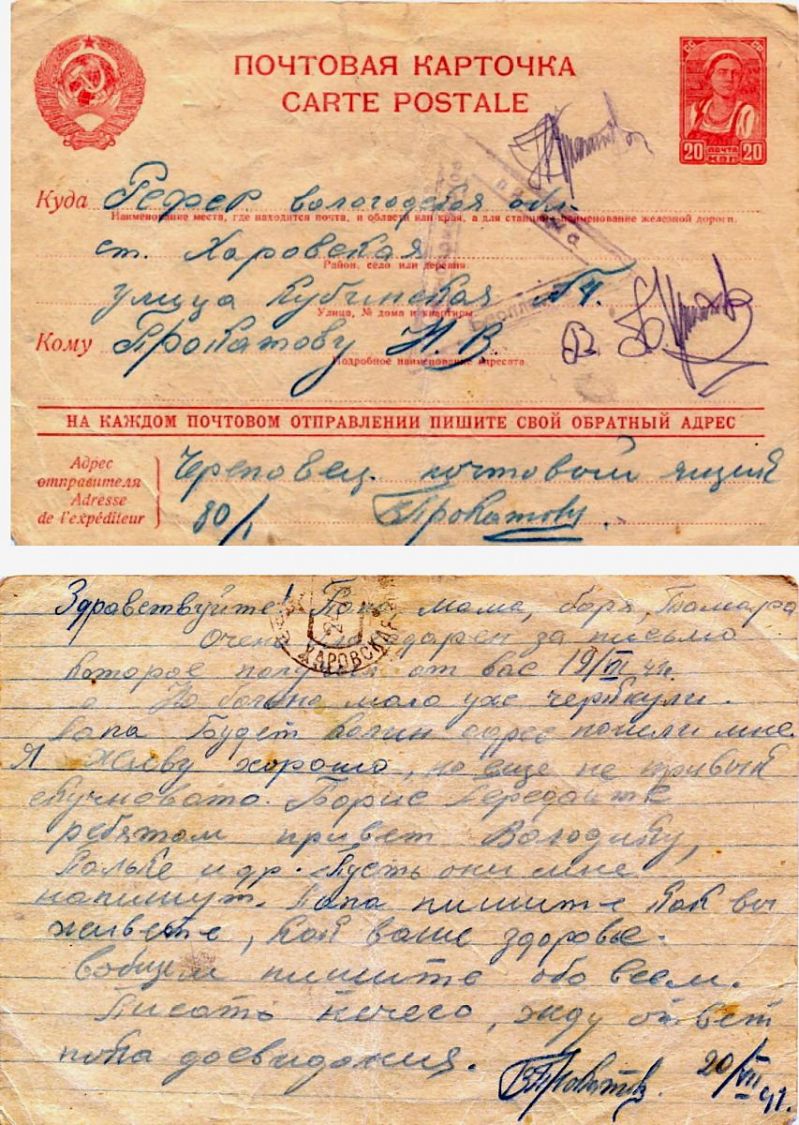 ПОЧТОВАЯ КАРТОЧКА
CARTE POSTALE
20 ПОЧТА 20
Куда Рефер вологодская обл.
Наименование места, где находится почта, и области или края, а для станции наименование железной дороги.
ст. Харовская
Район, село или деревня
улица Кубинская №4.
Улица, № дома и квартиры
Кому Прокатову Н. В.
Подробное наименование адресата
НА КАЖДОМ ПОЧТОВОМ ОТПРАВЛЕНИИ ПИШИТЕ СВОЙ ОБРАТНЫЙ АДРЕС
Адрес отправителя
Adresse de l'expéditeur
Череповец. почтовый ящик
80/1 Прокатову.
Здравствуйте! Папа мама, боря, Тамара
Очень за письмо
которое от вас 19/VII
ХАРОВСКАЯ
мало уже
Папа Будет адрес пошли мне
Я Живу хорошо, но еще не привык
скучновато. Борис Передайте
ребятам привет Володину,
Кольке и др. Пусть они мне
напишут. Папа пишите Как вы
живете, Как ваше здоровье.
вобщем пишите обо всем.
Писать нечего, жду ответ
пока досвидания.
ВПрокатов. 20/VII-41.